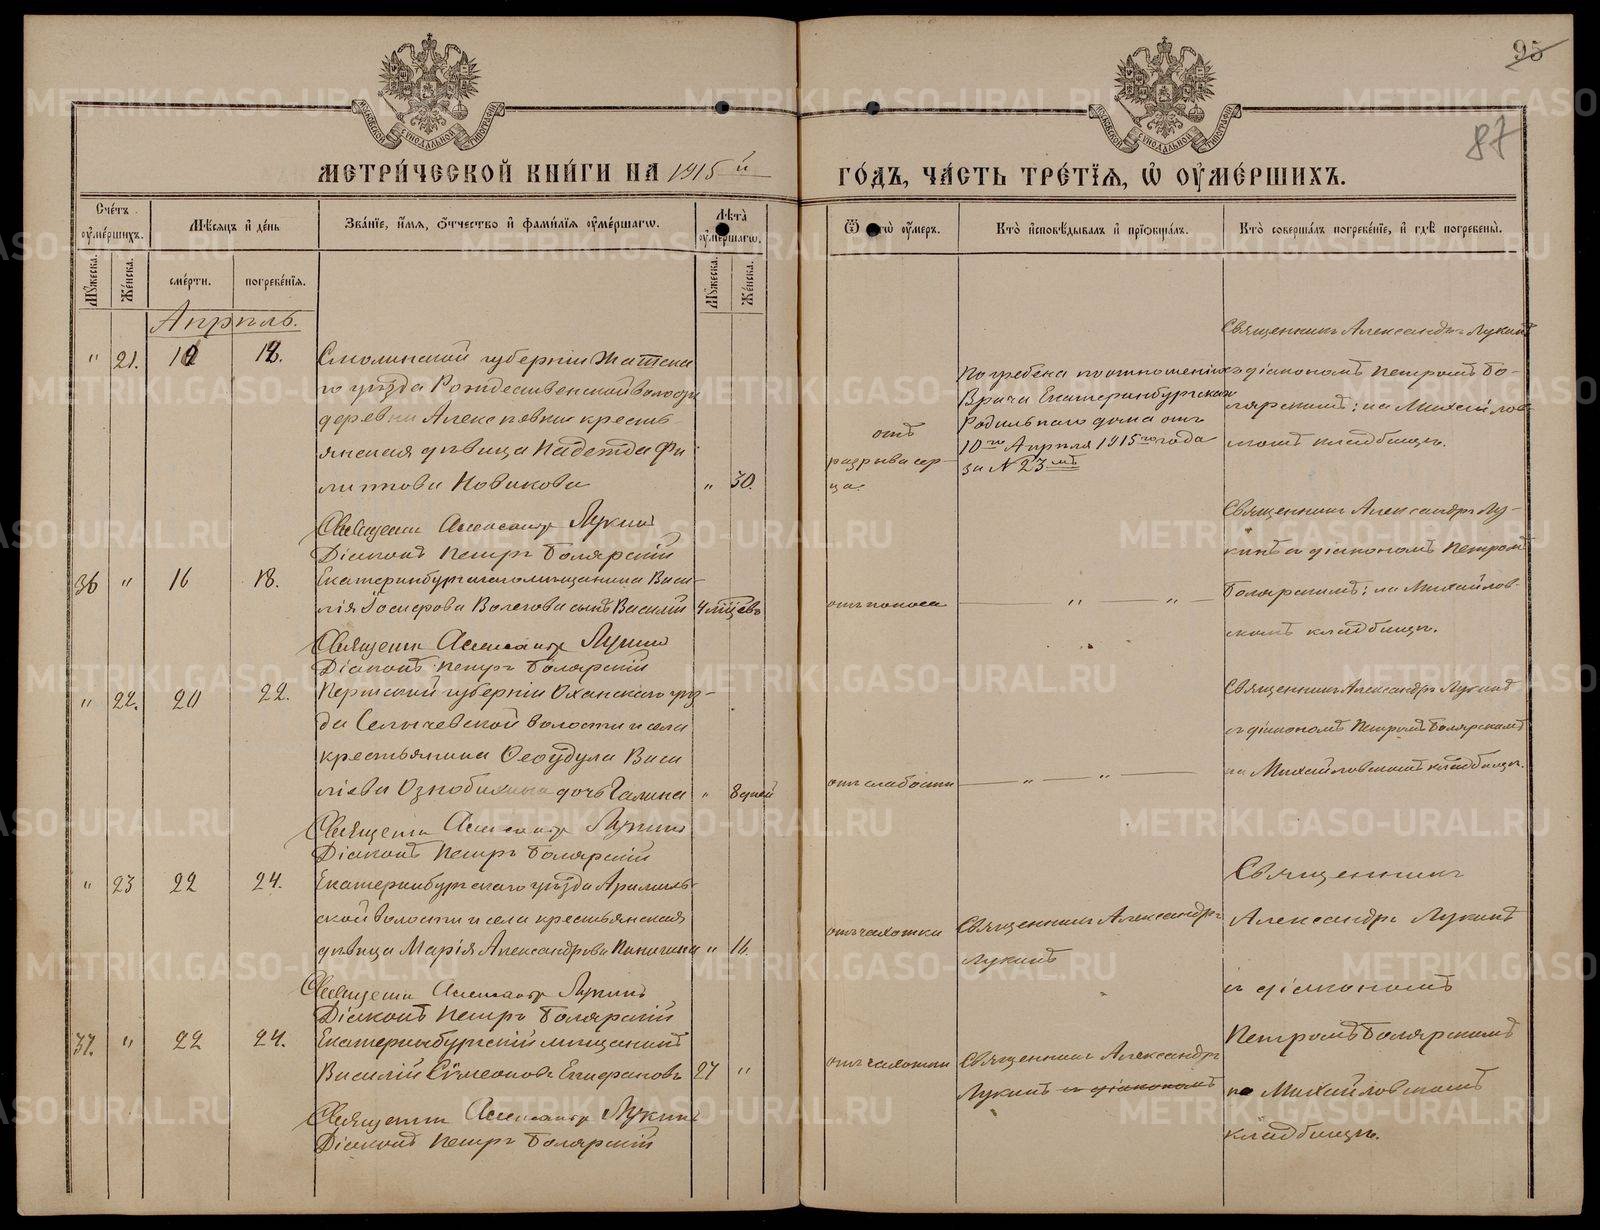 95
87
МЕТРИ́ЧЕСКОЙ КНИ́ГИ НА 1915й
ГО́ДЪ, ЧА́СТЬ ТРЕ́ТІѦ, Ѽ ОУ҆МЕ́РШИХЪ.
Сче́тъ оу҆ме́ршихъ.
Мѣ́сяцъ и҆ де́нь
Зва́нїе, и҆́мя, ѻ҆́тчество и҆ фами́лїя оу҆ме́ршагѡ.
Лѣта̀ оу҆ме́ршагѡ.
Ѿ чегѡ̀ оу҆́меръ.
Кто̀ и҆сповѣ́дывалъ и҆ прїѡбща́лъ.
Кто̀ соверша́лъ погребе́нїе, и҆ гдѣ̀ погребены̀.
Мꙋ́жеска.
Же́нска.
сме́рти.
погребе́нїя.
Мꙋ́жеска.
Же́нска.
Апрѣль.
" 21. 10 12.
Смоленской губерніи Гжатска
го уѣзда Рождественской волости
деревни Алексѣевки кресть
янская дѣвица Надежда Фи
липпова Новикова " 30.
отъ
разрыва сер
ца.
Погребена по отношенію
Врача Екатеринбургскаго
Родильнаго дома отъ
10го Апрѣля 1915го года
за № 23мъ
Священникъ Александръ Лукинъ
съ діакономъ Петромъ Бо-
лярскимъ; на Михайлов
скомъ кладбищѣ.
Священникъ Александръ Лукинъ
Діаконъ Петръ Болярскій
36 " 16 18.
Екатеринбургскаго мѣщанина Васи-
лія Іосифова Волегова сынъ Василій 4 мѣсяцевъ
отъ поноса
— " — " —
Священникъ Александръ Лу-
кинъ съ діакономъ Петромъ
Болярскимъ; на Михайлов-
скомъ кладбищѣ.
Священникъ Александръ Лукинъ
Діаконъ Петръ Болярскій
" 22. 20 22.
Пермской губерніи Оханскаго уѣз-
да волости и села
крестьянина Ѳеодула Васи
ліева Ознобихина дочь Галина " 8 дней
отъ слабости
— " — " —
Священникъ Александръ Лукинъ
съ діакономъ Петромъ Болярскимъ
на Михайловскомъ кладбищѣ.
Священникъ Александръ Лукинъ
Діаконъ Петръ Болярскій
" 23 22 24.
Екатеринбургскаго уѣзда Арамиль-
ской волости и села крестьянская
дѣвица Марія Александрова " 16.
отъ чахотки
Священникъ Александръ
Лукинъ
Священникъ
Александръ Лукинъ
съ діакономъ
Петромъ Болярскимъ
на Михайловскомъ
кладбищѣ.
Священникъ Александръ Лукинъ
Діаконъ Петръ Болярскій
37. " 22 24.
Екатеринбургскій мѣщанинъ
Василій Сѵмеоновъ Епифановъ 27 "
отъ чахотки
Священникъ Александръ
Лукинъ съ діакономъ
Священникъ Александръ Лукинъ
Діаконъ Петръ Болярскій
METRIKI.GASO-URAL.RU